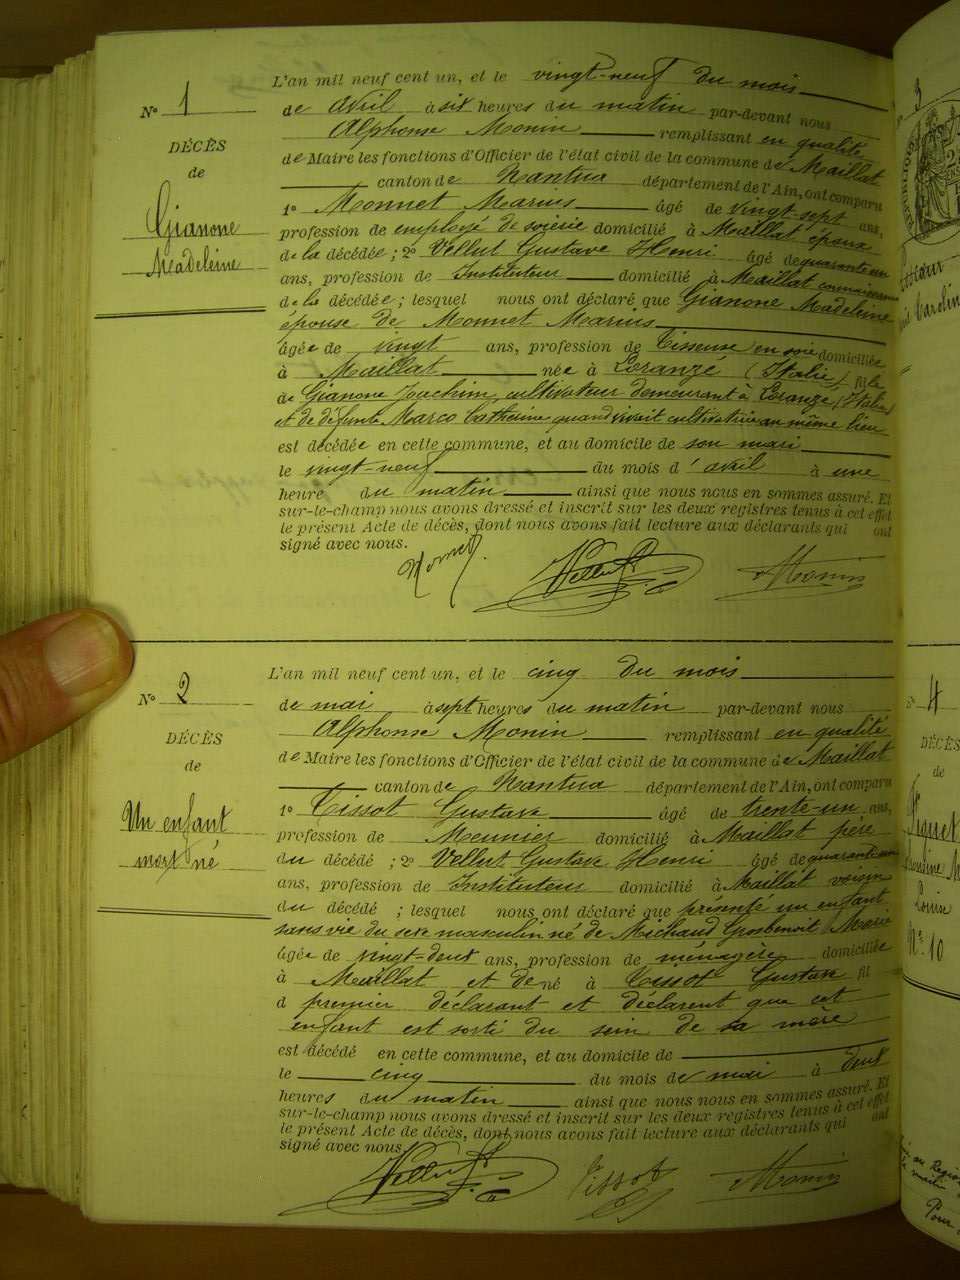 N° 1
DÉCÈS
de
Gianone
Madeleine
L'an mil neuf cent un, et le vingt-neuf du mois
de avril à six heures du matin par-devant nous
Alphonse Monin remplissant en qualité
de Maire les fonctions d'Officier de l'état civil de la commune de Maillat
canton de Nantua département de l'Ain, ont comparu
1° Monnet Marius âgé de vingt-sept ans,
profession de employé de soierie domicilié à Maillat époux
de la décédée ; 2° Vellut Gustave Henri âgé de quarante un
ans, profession de Instituteur domicilié à Maillat connaissance
de la décédée ; lesquel nous ont déclaré que Gianone Madeleine
épouse de Monnet Marius
âgée de vingt ans, profession de Tisseuse en soie domiciliée
à Maillat née à Loranzé (Italie) fille
de Gianone Joachim, cultivateur demeurant à Loranzé (Italie)
et de défunte Marco Catherine quand vivait cultivatrice au même lieu
est décédée en cette commune, et au domicile de son mari
le vingt-neuf du mois d'avril à une
heure du matin ainsi que nous nous en sommes assuré. Et
sur-le-champ nous avons dressé et inscrit sur les deux registres tenus à cet effet
le présent Acte de décès, dont nous avons fait lecture aux déclarants qui ont
signé avec nous.
Monnet Vellut Monin
N° 2
DÉCÈS
de
Un enfant
mort né
L'an mil neuf cent un, et le cinq du mois
de mai à sept heures du matin par-devant nous
Alphonse Monin remplissant en qualité
de Maire les fonctions d'Officier de l'état civil de la commune de Maillat
canton de Nantua département de l'Ain, ont comparu
1° Tissot Gustave âgé de trente-un ans,
profession de Meunier domicilié à Maillat père
du décédé ; 2° Vellut Gustave Henri âgé de quarante-un
ans, profession de Instituteur domicilié à Maillat voisin
du décédé ; lesquel nous ont déclaré que présenté un enfant
sans vie du sexe masculin né de Michaud Grosbenoit Marie
âgée de vingt-deux ans, profession de ménagère domiciliée
à Maillat et de né à Tissot Gustave fil
d premier déclarant et déclarent que cet
enfant est sorti du sein de sa mère
est décédé en cette commune, et au domicile de
le cinq du mois de mai à deux
heures du matin ainsi que nous nous en sommes assuré. Et
sur-le-champ nous avons dressé et inscrit sur les deux registres tenus à cet effet
le présent Acte de décès, dont nous avons fait lecture aux déclarants qui ont
signé avec nous.
Vellut Tissot Monin
3
N° 4
DÉCÈS
de
Piguet
Louise
N° 10
Pour